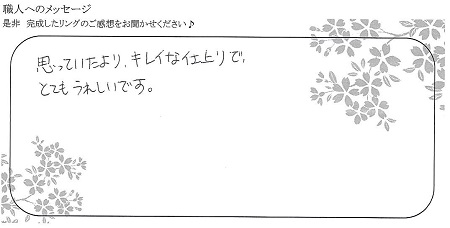 職人へのメッセージ
是非 完成したリングのご感想をお聞かせください♪
思っていたより、キレイな仕上りで、
とてもうれしいです。